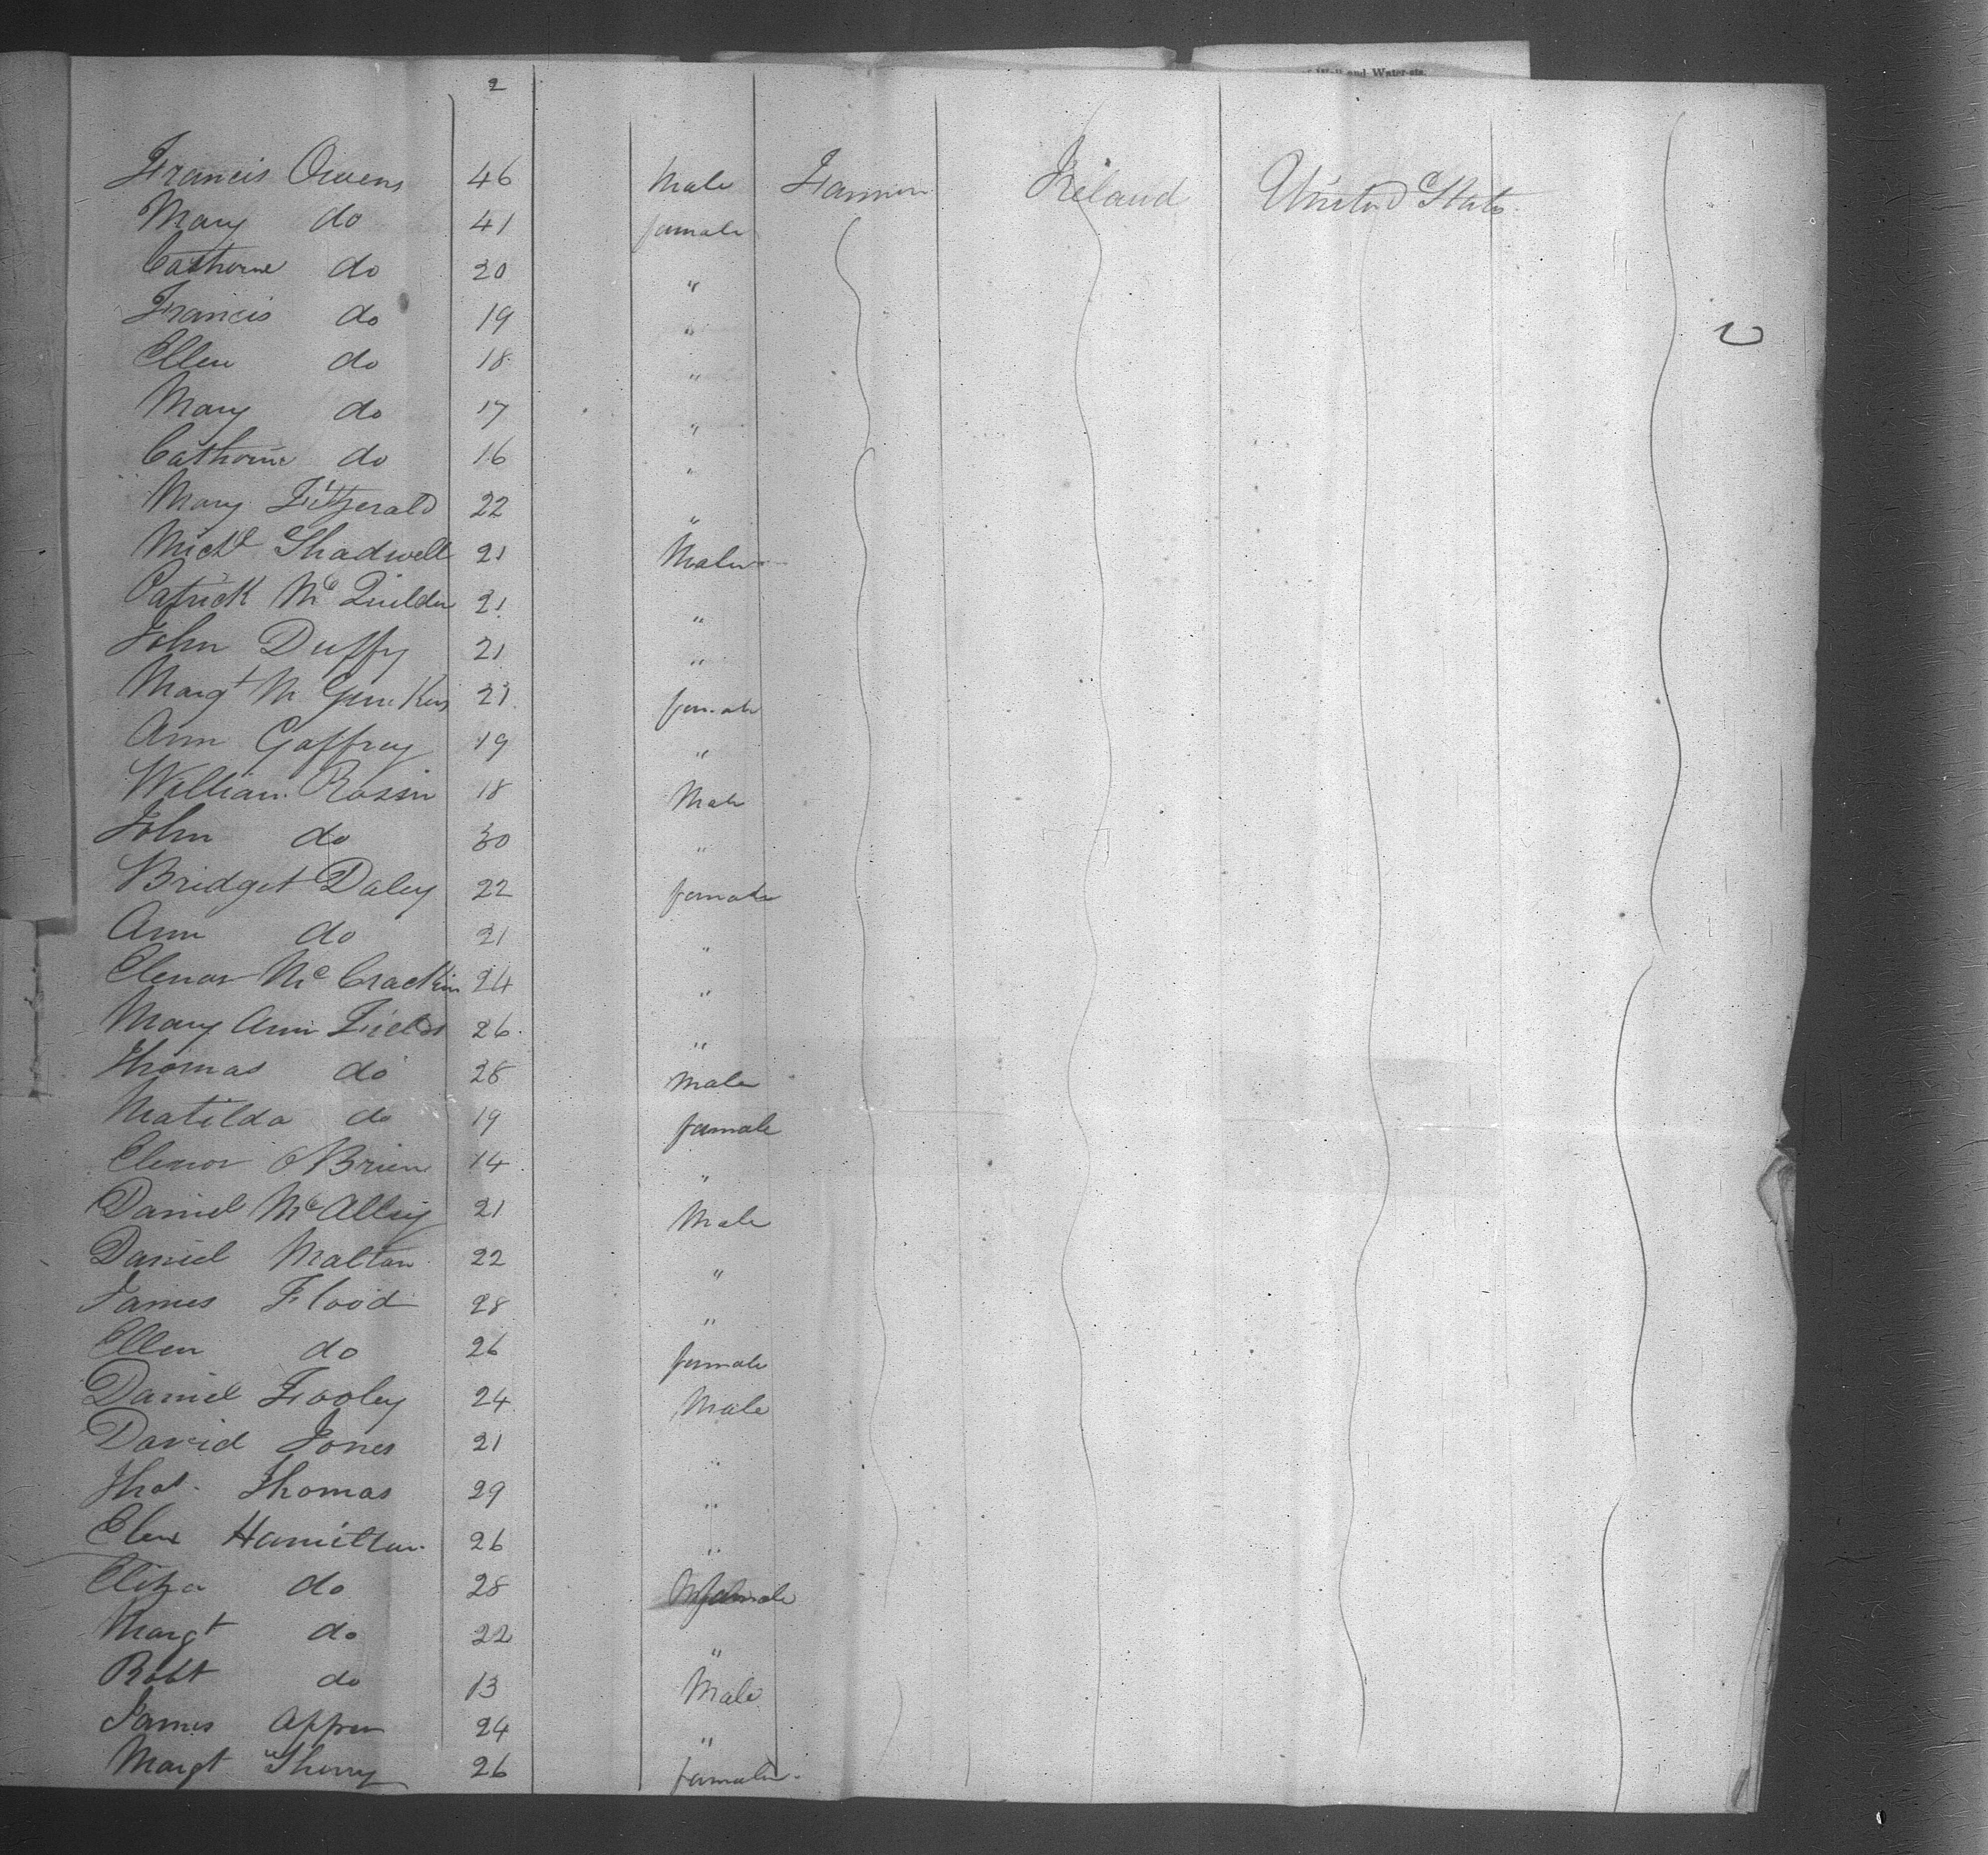 of Well and Water-sts.
2
Francis Owens 46 Male Farmer Ireland United States
Mary do 41 female
Cathorine do 20 "
Francis do 19 "
Ellen do 18 "
Mary do 17 "
Cathorine do 16 "
Mary Fitzgerald 22 "
Michl Shadwell 21 Male
Patrick Mc 21 "
John Duffy 21 "
Margt M 21 female
Ann Gaffrey 19 "
William Rossin 18 Male
John do 30 "
Bridget Daley 22 female
Ann do 21 "
Elenor Mc Crackin 24 "
Mary Ann Fields 26 "
Thomas do 28 Male
Matilda do 19 female
Elenor O Brien 14 "
Daniel Mc 21 Male
Daniel Maltan 22 "
James Flood 28 "
Ellen do 26 female
Daniel Fooley 24 Male
David Jones 21 "
Thos. Thomas 29 "
Hamilton 26 "
Eliza do 28 female
Margt do 22 "
Robt do 13 Male
James 24 "
Margt Sherry 26 female
2